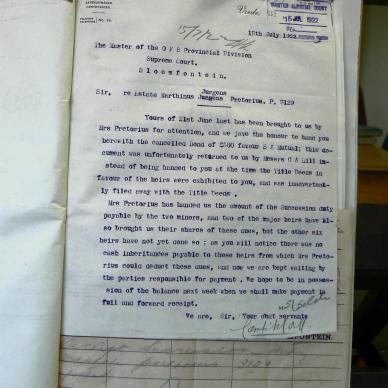 15 JUL 1922
15th July 1922.
The Master of the O F S Provincial Division
Supreme Court.
Bloemfontein.
Jurgens
Sir, re Estate Marthinus Jurgens Pretorius, P. 3129
Yours of 21st June last has been brought to us by
Mrs Pretorius for attention, and we have the honour to hand you
herewith the cancelled Bond of £500 favour S A Mutual; this do-
cument was unfortunately returned to us by Messrs G A Hill in-
stead of being handed to you at the time the Title Deeds in
favour of the heirs were exhibited to you, and was inadvertent-
ly filed away with the Title Deeds.
Mrs Pretorius has handed us the amount of the Succession duty
payable by the two minors, and two of the major heirs have al-
so brought us their shares of these dues, but the other six
heirs have not yet done so ; as you will notice there was no
cash inheritances payable to these heirs from which Mrs Preto-
rius could deduct these dues, and now we are kept waiting by
the parties responsible for payment . We hope to be in posses-
sion of the balance next week when we shall make payment in
full and forward receipt.
We are, Sir, Your obdt servants